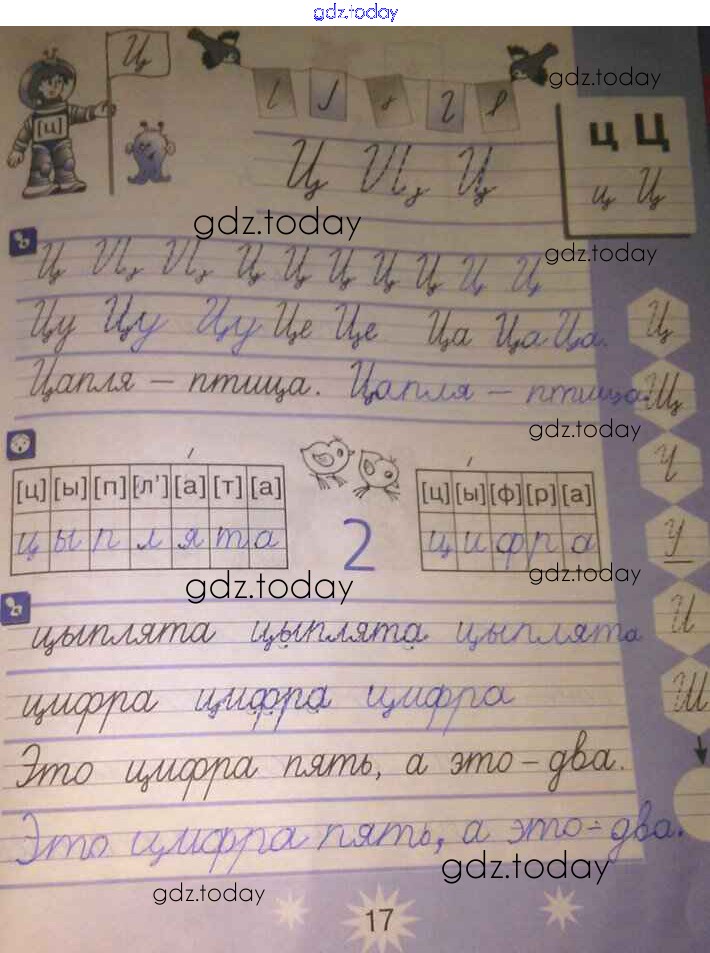 gdz.today
Ц
[ц]
gdz.today
ц Ц
Ц Ц
ц Ц
gdz.today
gdz.today
Ц Ц Ц Ц Ц Ц Ц Ц Ц
Цу Цу Цу Це Це Ца Ца Ца.
Ц
Цапля – птица. Цапля – птица.
Щ
gdz.today
Ч
[ц] [ы] [п] [л'] [а] [т] [а]
[ц] [ы] [ф] [р] [а]
ц ы п л я т а
2
ц и ф р а
У
gdz.today
gdz.today
цыплята цыплята цыплята
И
цифра цифра цифра
Ш
Это цифра пять, а это – два.
Это цифра пять, а это – два.
gdz.today
gdz.today
17